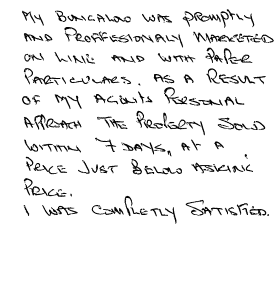 MY BUNGALOW WAS PROMPTLY
AND PROFFESIONALY MARKETED
ON LINE AND WITH PAPER
PARTICULARS. AS A RESULT
OF MY AGENTS PERSONAL
APPROACH THE PROPERTY SOLD
WITHIN 7 DAYS, AT A
PRICE JUST BELOW ASKING
PRICE.
I WAS COMPLETLY SATISFIED.